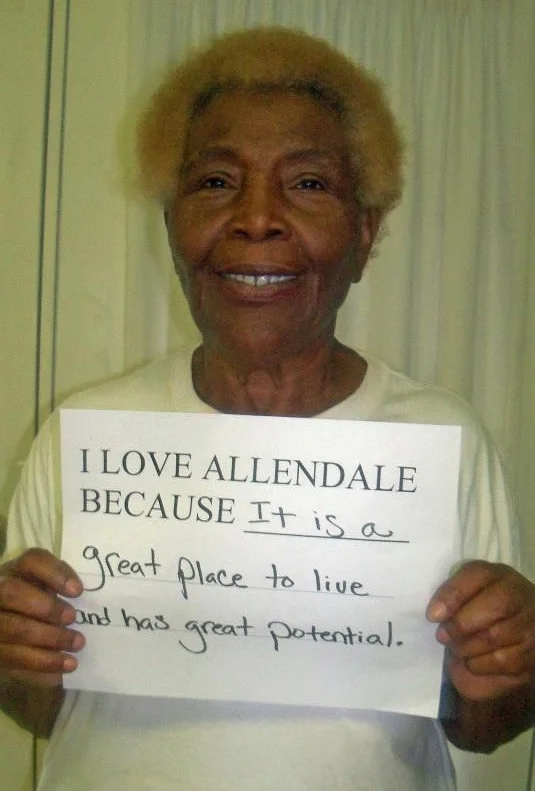 I LOVE ALLENDALE
BECAUSE It is a
great place to live
and has great potential.